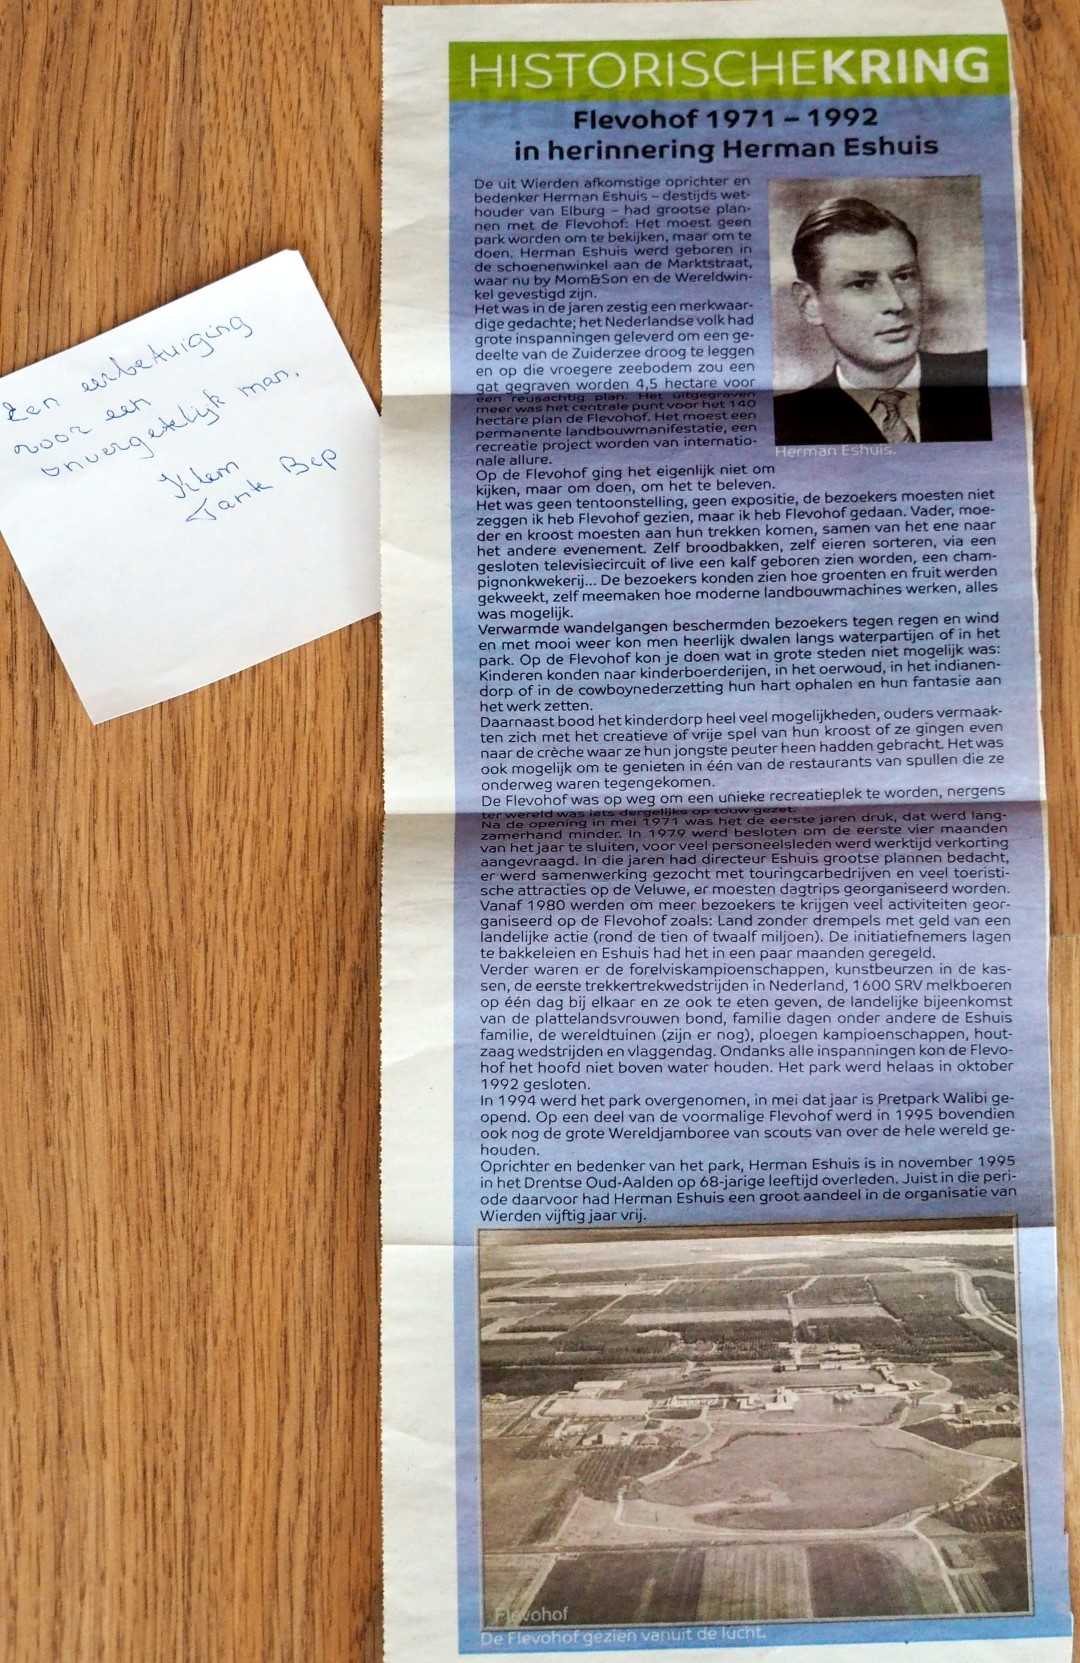 Een eerbetuiging
voor een
onvergetelijk man.
Klem
Tante Bep
HISTORISCHEKRING
Flevohof 1971 – 1992
in herinnering Herman Eshuis
De uit Wierden afkomstige oprichter en
bedenker Herman Eshuis – destijds wet-
houder van Elburg – had grootse plan-
nen met de Flevohof: Het moest geen
park worden om te bekijken, maar om te
doen. Herman Eshuis werd geboren in
de schoenenwinkel aan de Marktstraat,
waar nu by Mom&Son en de Wereldwin-
kel gevestigd zijn.
Het was in de jaren zestig een merkwaar-
dige gedachte; het Nederlandse volk had
grote inspanningen geleverd om een ge-
deelte van de Zuiderzee droog te leggen
en op die vroegere zeebodem zou een
gat gegraven worden 4,5 hectare voor
een reusachtig plan. Het uitgegraven
meer was het centrale punt voor het 140
hectare plan de Flevohof. Het moest een
permanente landbouwmanifestatie, een
recreatie project worden van internatio-
nale allure.
Herman Eshuis.
Op de Flevohof ging het eigenlijk niet om
kijken, maar om doen, om het te beleven.
Het was geen tentoonstelling, geen expositie, de bezoekers moesten niet
zeggen ik heb Flevohof gezien, maar ik heb Flevohof gedaan. Vader, moe-
der en kroost moesten aan hun trekken komen, samen van het ene naar
het andere evenement. Zelf broodbakken, zelf eieren sorteren, via een
gesloten televisiecircuit of live een kalf geboren zien worden, een cham-
pignonkwekerij... De bezoekers konden zien hoe groenten en fruit werden
gekweekt, zelf meemaken hoe moderne landbouwmachines werken, alles
was mogelijk.
Verwarmde wandelgangen beschermden bezoekers tegen regen en wind
en met mooi weer kon men heerlijk dwalen langs waterpartijen of in het
park. Op de Flevohof kon je doen wat in grote steden niet mogelijk was:
Kinderen konden naar kinderboerderijen, in het oerwoud, in het indianen-
dorp of in de cowboynederzetting hun hart ophalen en hun fantasie aan
het werk zetten.
Daarnaast bood het kinderdorp heel veel mogelijkheden, ouders vermaak-
ten zich met het creatieve of vrije spel van hun kroost of ze gingen even
naar de crèche waar ze hun jongste peuter heen hadden gebracht. Het was
ook mogelijk om te genieten in één van de restaurants van spullen die ze
onderweg waren tegengekomen.
De Flevohof was op weg om een unieke recreatieplek te worden, nergens
ter wereld was iets dergelijks op touw gezet.
Na de opening in mei 1971 was het de eerste jaren druk, dat werd lang-
zamerhand minder. In 1979 werd besloten om de eerste vier maanden
van het jaar te sluiten, voor veel personeelsleden werd werktijd verkorting
aangevraagd. In die jaren had directeur Eshuis grootse plannen bedacht,
er werd samenwerking gezocht met touringcarbedrijven en veel toeristi-
sche attracties op de Veluwe, er moesten dagtrips georganiseerd worden.
Vanaf 1980 werden om meer bezoekers te krijgen veel activiteiten geor-
ganiseerd op de Flevohof zoals: Land zonder drempels met geld van een
landelijke actie (rond de tien of twaalf miljoen). De initiatiefnemers lagen
te bakkeleien en Eshuis had het in een paar maanden geregeld.
Verder waren er de forelviskampioenschappen, kunstbeurzen in de kas-
sen, de eerste trekkertrekwedstrijden in Nederland, 1600 SRV melkboeren
op één dag bij elkaar en ze ook te eten geven, de landelijke bijeenkomst
van de plattelandsvrouwen bond, familie dagen onder andere de Eshuis
familie, de wereldtuinen (zijn er nog), ploegen kampioenschappen, hout-
zaag wedstrijden en vlaggendag. Ondanks alle inspanningen kon de Flevo-
hof het hoofd niet boven water houden. Het park werd helaas in oktober
1992 gesloten.
In 1994 werd het park overgenomen, in mei dat jaar is Pretpark Walibi ge-
opend. Op een deel van de voormalige Flevohof werd in 1995 bovendien
ook nog de grote Wereldjamboree van scouts van over de hele wereld ge-
houden.
Oprichter en bedenker van het park, Herman Eshuis is in november 1995
in het Drentse Oud-Aalden op 68-jarige leeftijd overleden. Juist in die peri-
ode daarvoor had Herman Eshuis een groot aandeel in de organisatie van
Wierden vijftig jaar vrij.
Flevohof
De Flevohof gezien vanuit de lucht.